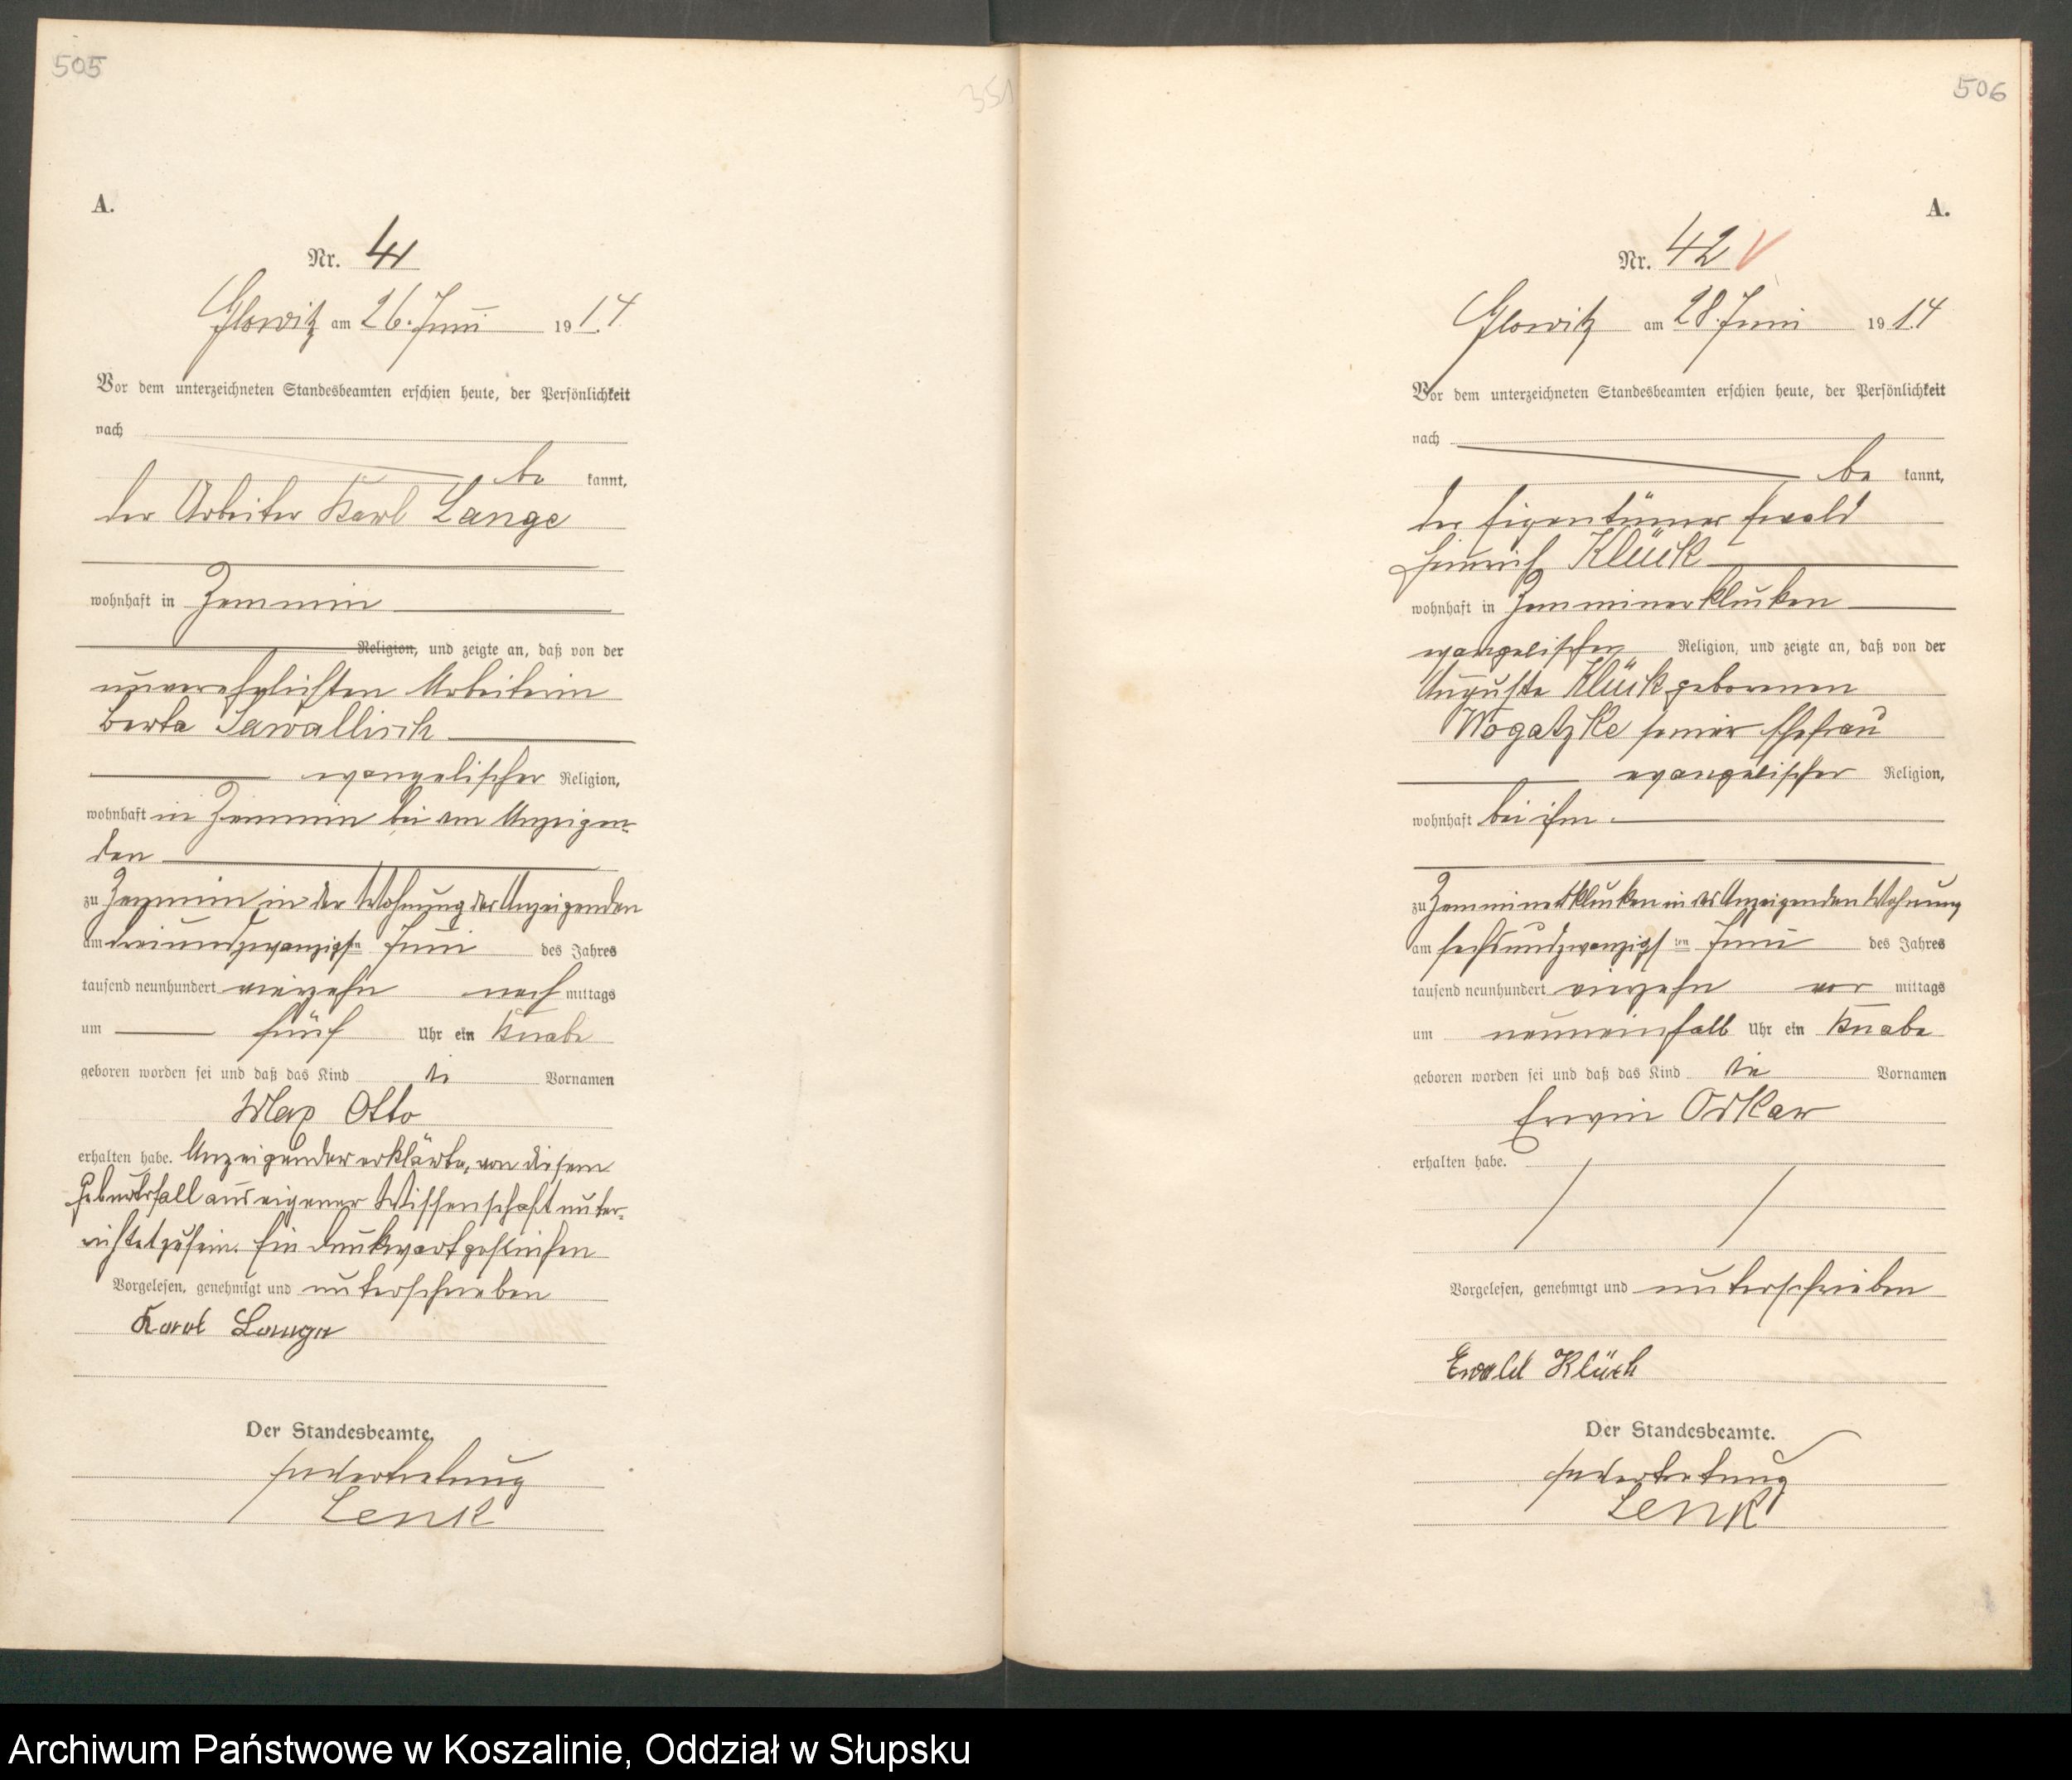 505
351
A.
Nr. 41
Glowitz am 26. Juni 1914
Vor dem unterzeichneten Standesbeamten erschien heute, der Persönlichkeit
nach
be kannt,
der Arbeiter Karl Lange
wohnhaft in Zemmin
Religion, und zeigte an, daß von der
unverehelichten Arbeiterin
Berta Sawallisch
evangelischer Religion,
wohnhaft in Zemmin bei dem Anzeigen-
den
zu Zemmin in der Wohnung des Anzeigenden
am dreiundzwanzigsten Juni des Jahres
tausend neunhundert vierzehn nach mittags
um fünf Uhr ein Knabe
geboren worden sei und daß das Kind die Vornamen
Max Otto
erhalten habe. Anzeigender erklärte, von diesem
Geburtsfall aus eigener Wissenschaft unter-
richtet zu sein. Ein Druckwort gestrichen
Vorgelesen, genehmigt und unterschrieben
Karl Lange
Der Standesbeamte.
In Vertretung
Lenk
506
A.
Nr. 42 V
Glowitz am 28. Juni 1914
Vor dem unterzeichneten Standesbeamten erschien heute, der Persönlichkeit
nach
be kannt,
der Eigentümer Ewald
Heinrich Klück
wohnhaft in Zemminerklucken
evangelischen Religion, und zeigte an, daß von der
Auguste Klück geborenen
Wogatzke seiner Ehefrau
evangelischer Religion,
wohnhaft bei ihm
zu Zemminerklucken in des Anzeigenden Wohnung
am sechsundzwanzigsten Juni des Jahres
tausend neunhundert vierzehn vor mittags
um neuneinhalb Uhr ein Knabe
geboren worden sei und daß das Kind die Vornamen
Erwin Oskar
erhalten habe.
Vorgelesen, genehmigt und unterschrieben
Ewald Klück
Der Standesbeamte.
In Vertretung
Lenk
Archiwum Państwowe w Koszalinie, Oddział w Słupsku